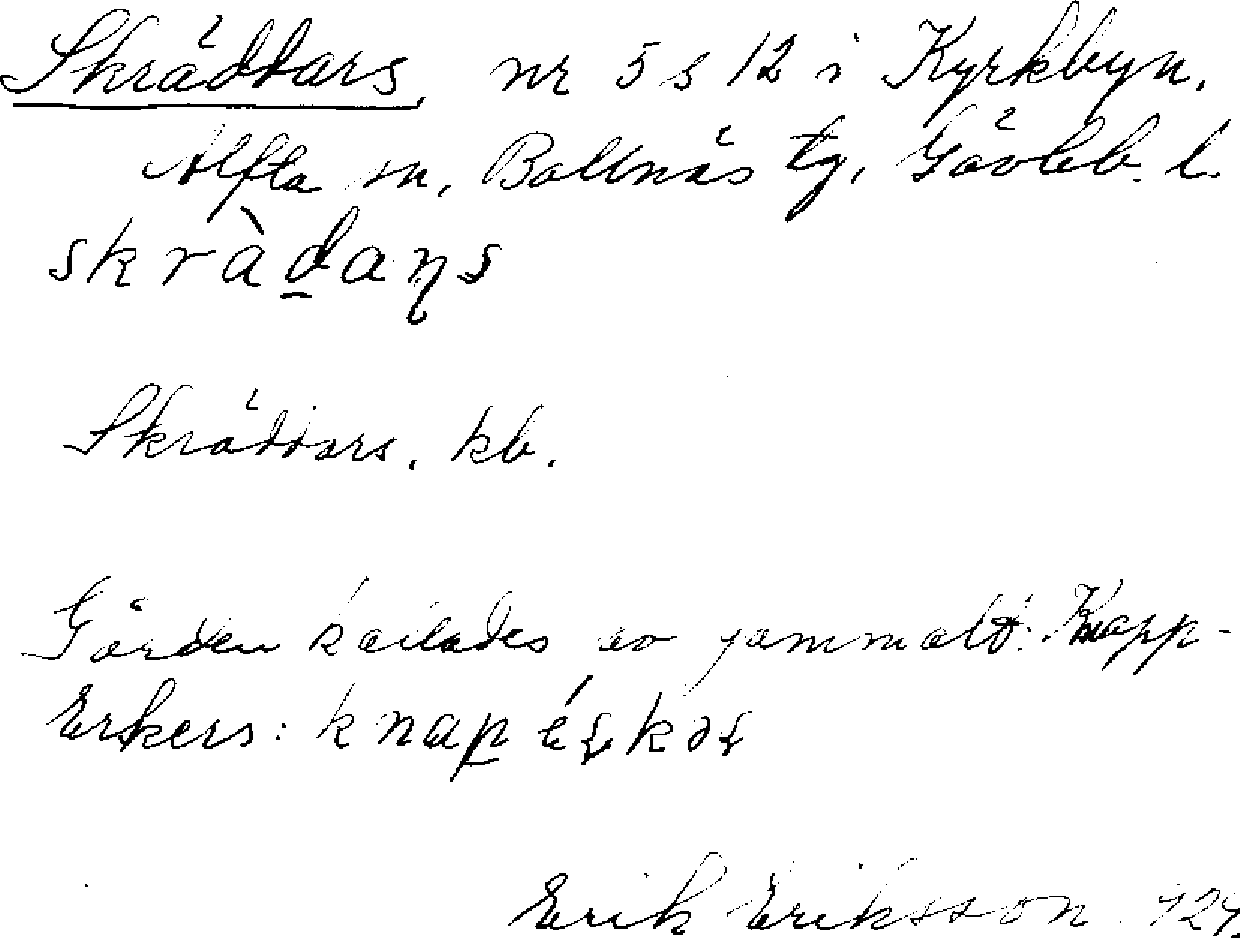 Skräddars, nr 5 s 12 i Kyrkbyn,
Alfta sn, Bollnäs tg, Gävleb. l.
skràd̲aɳs
Skräddars, kb.
Gården kallades av gammalt: Knapp-
Erkers: knap
Erik Eriksson 124.